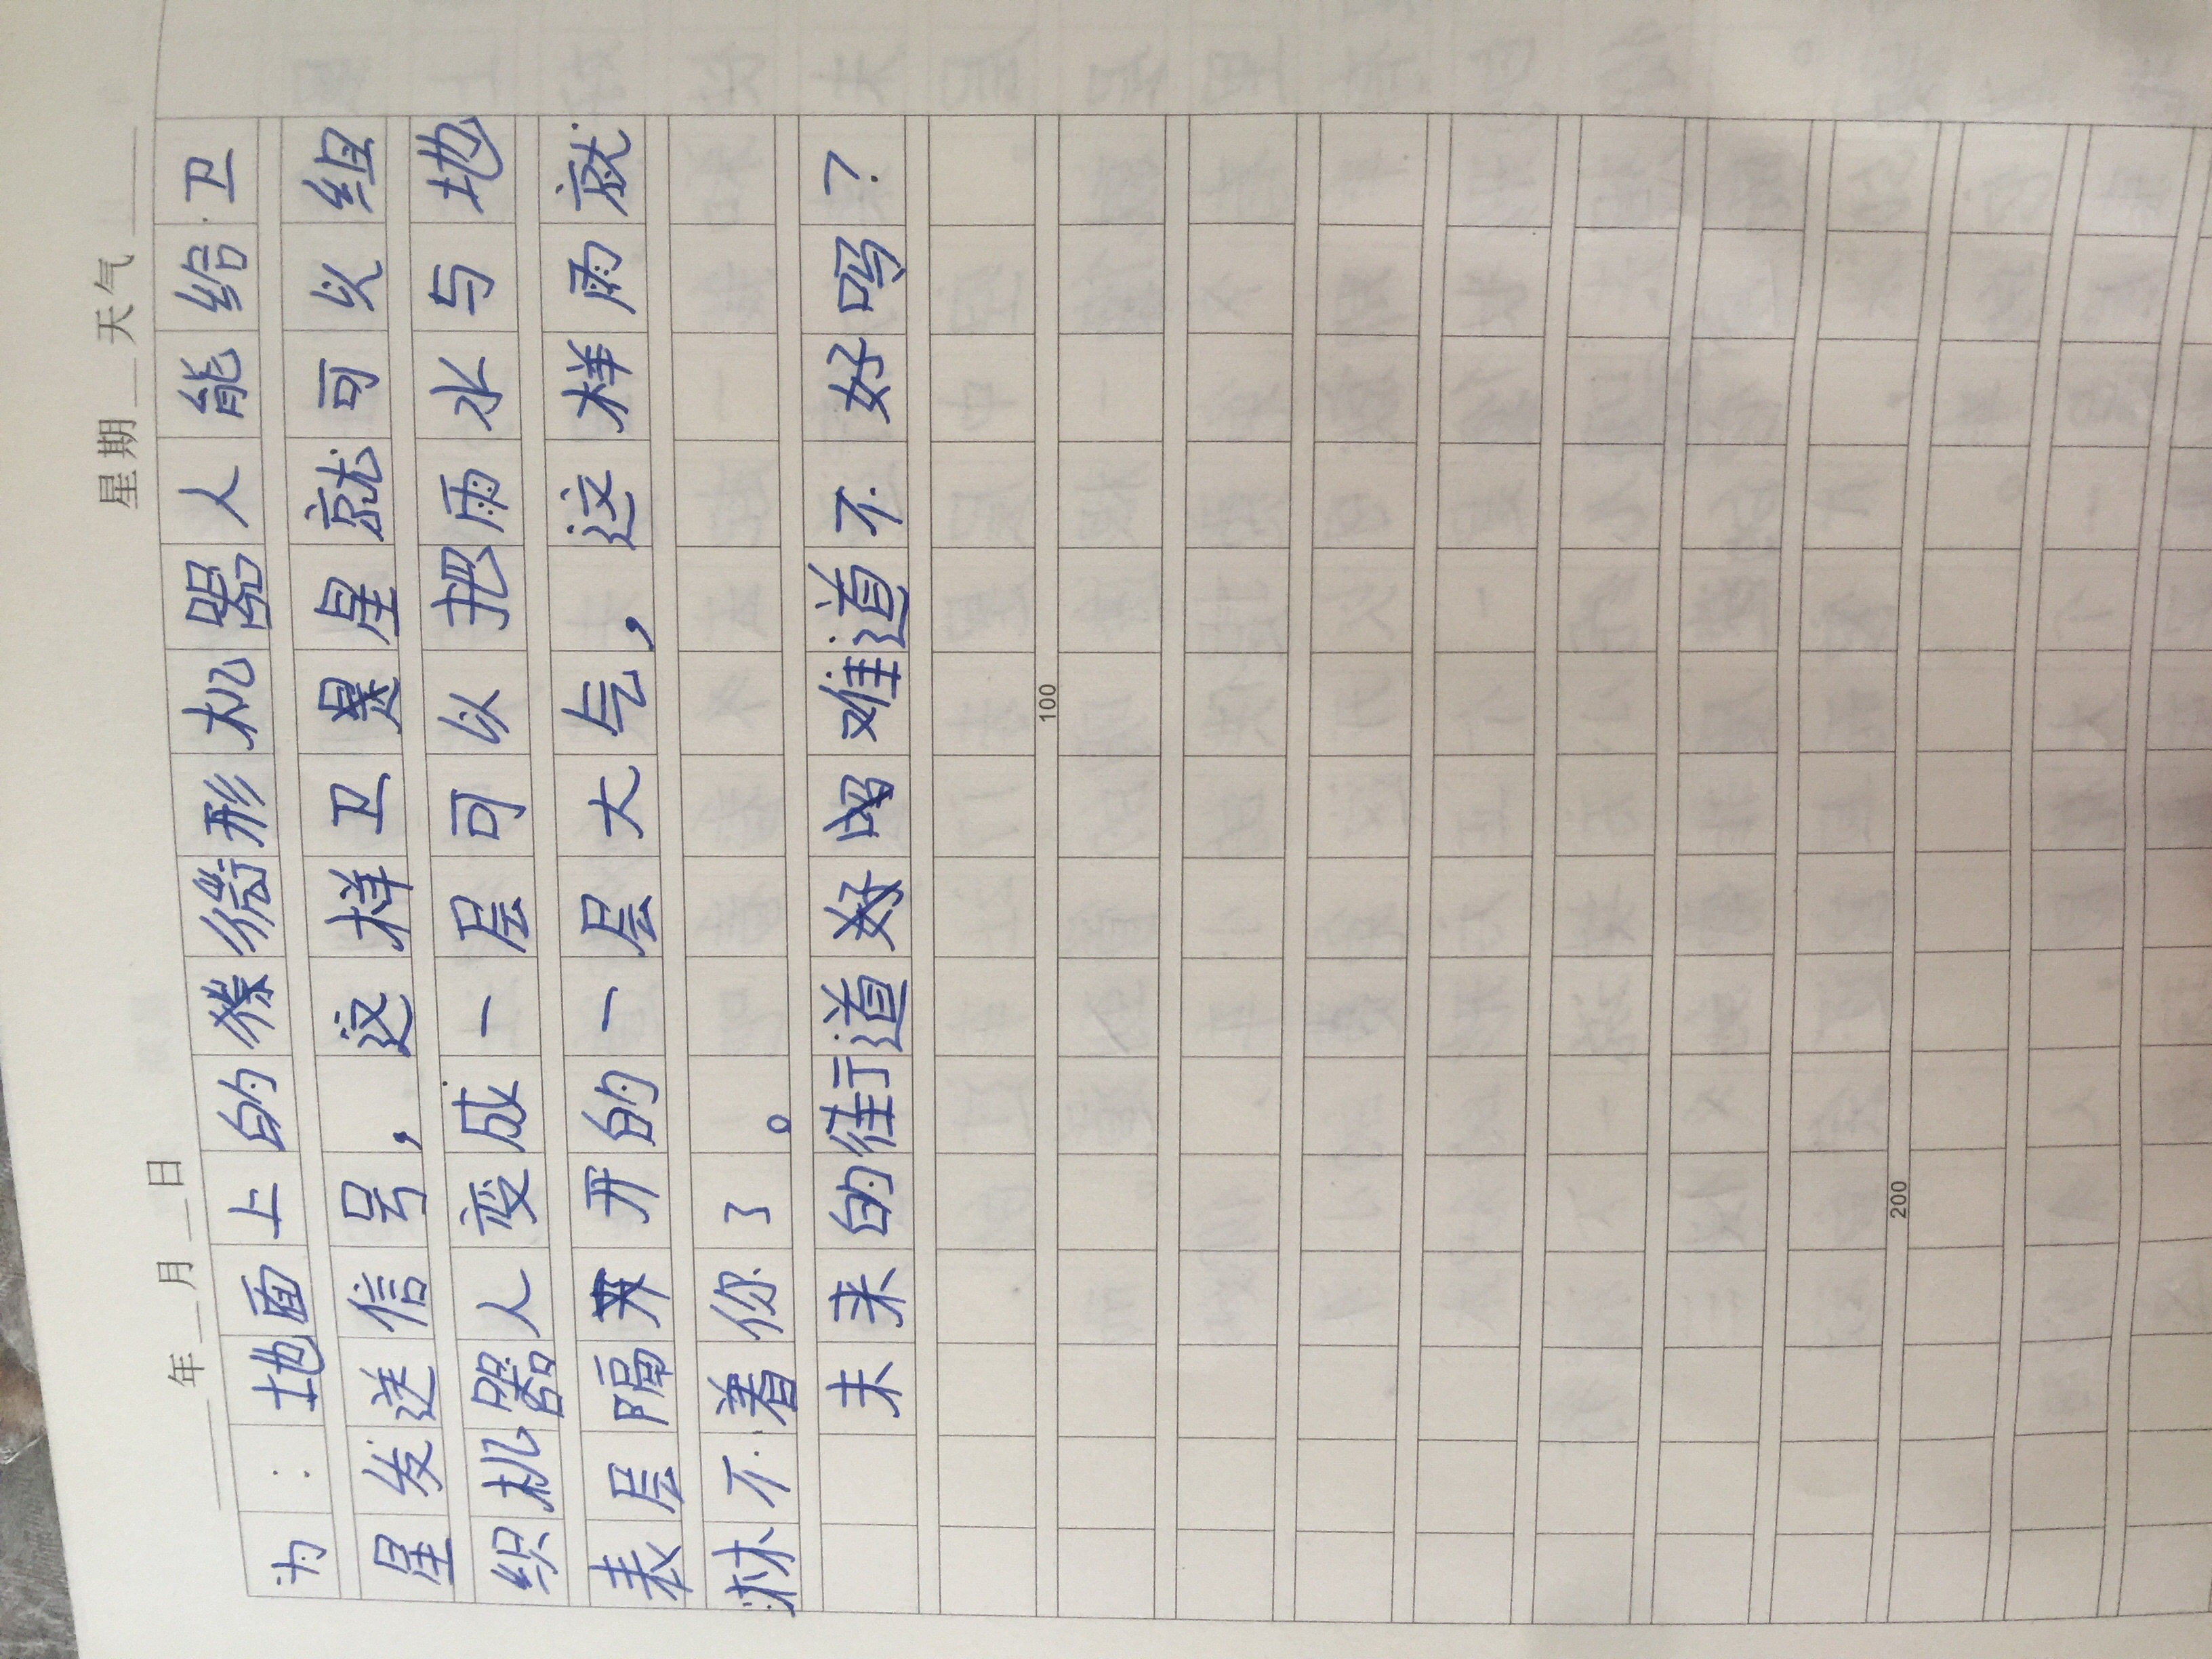 ____年__月__日 星期__天气____
为：地面上的微形机器人能给卫
星发送信号，这样卫星就可以组
织机器人变成一层可以把雨水与地
表层隔开的一层大气，这样雨就
淋不着你了。
未来的街道难道不好吗？
100
200